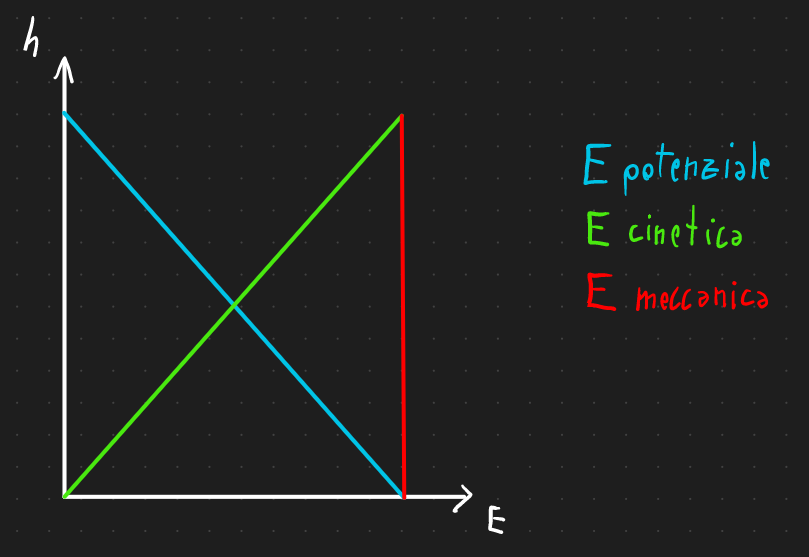 h
E potenziale
E cinetica
E meccanica
E